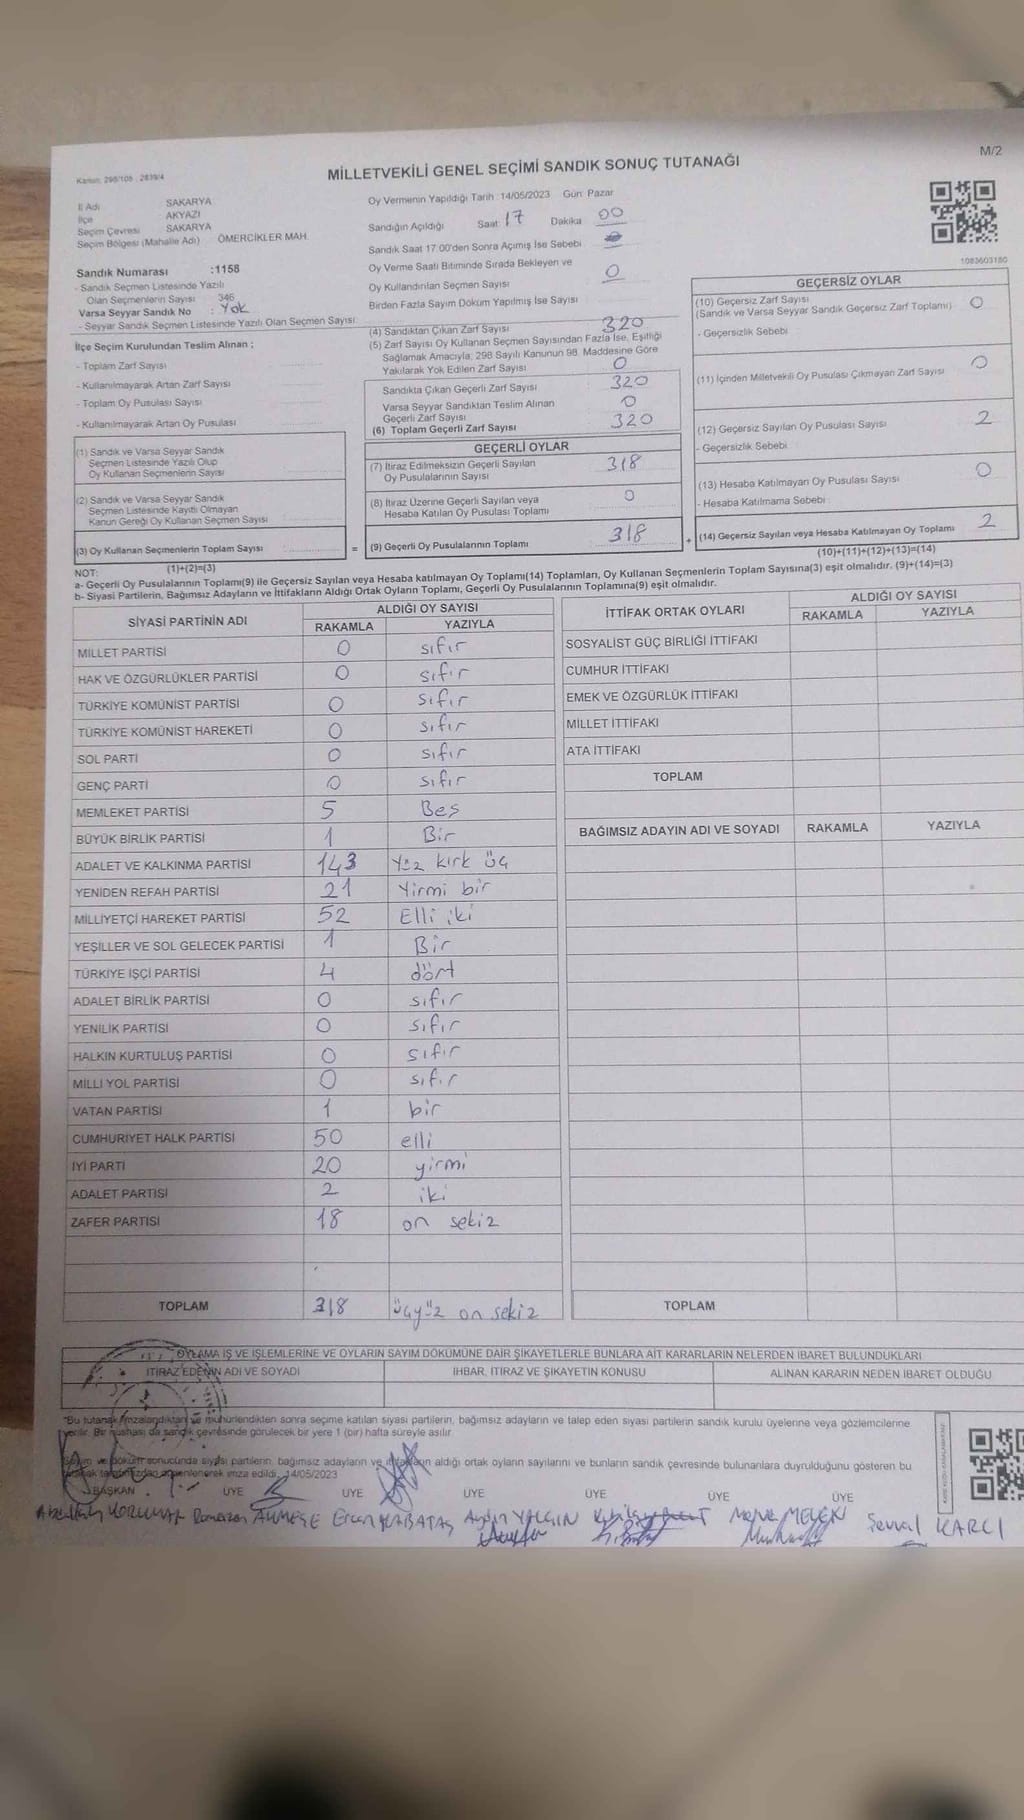 Kanun: 298/105 , 2839/4
MİLLETVEKİLİ GENEL SEÇİMİ SANDIK SONUÇ TUTANAĞI
M/2
İl Adı SAKARYA
İlçe AKYAZI
Seçim Çevresi SAKARYA
Seçim Bölgesi (Mahalle Adı) ÖMERCİKLER MAH.
Oy Vermenin Yapıldığı Tarih :14/05/2023 Gün: Pazar
Sandığın Açıldığı Saat: 17 Dakika 00
Sandık Saat 17:00'den Sonra Açımış İse Sebebi
Sandık Numarası :1158
- Sandık Seçmen Listesinde Yazılı
Olan Seçmenlerin Sayısı 346
Varsa Seyyar Sandık No : Yok
- Seyyar Sandık Seçmen Listesinde Yazılı Olan Seçmen Sayısı:
Oy Verme Saati Bitiminde Sırada Bekleyen ve
Oy Kullandırılan Seçmen Sayısı 0
Birden Fazla Sayım Döküm Yapılmış İse Sayısı
1083603180
İlçe Seçim Kurulundan Teslim Alınan ;
- Toplam Zarf Sayısı
- Kullanılmayarak Artan Zarf Sayısı
- Toplam Oy Pusulası Sayısı
- Kullanılmayarak Artan Oy Pusulası
(1) Sandık ve Varsa Seyyar Sandık
Seçmen Listesinde Yazılı Olup
Oy Kullanan Seçmenlerin Sayısı
(2) Sandık ve Varsa Seyyar Sandık
Seçmen Listesinde Kayıtlı Olmayan
Kanun Gereği Oy Kullanan Seçmen Sayısı
(3) Oy Kullanan Seçmenlerin Toplam Sayısı
(1)+(2)=(3)
(4) Sandıktan Çıkan Zarf Sayısı 320
(5) Zarf Sayısı Oy Kullanan Seçmen Sayısından Fazla İse, Eşitliği
Sağlamak Amacıyla, 298 Sayılı Kanunun 98. Maddesine Göre
Yakılarak Yok Edilen Zarf Sayısı 0
Sandıkta Çıkan Geçerli Zarf Sayısı 320
Varsa Seyyar Sandıktan Teslim Alınan
Geçerli Zarf Sayısı 0
(6) Toplam Geçerli Zarf Sayısı 320
GEÇERLİ OYLAR
(7) İtiraz Edilmeksizin Geçerli Sayılan
Oy Pusulalarının Sayısı 318
(8) İtiraz Üzerine Geçerli Sayılan veya
Hesaba Katılan Oy Pusulası Toplamı 0
= (9) Geçerli Oy Pusulalarının Toplamı 318 +
GEÇERSİZ OYLAR
(10) Geçersiz Zarf Sayısı 0
(Sandık ve Varsa Seyyar Sandık Geçersiz Zarf Toplamı)
- Geçersizlik Sebebi :
(11) İçinden Milletvekili Oy Pusulası Çıkmayan Zarf Sayısı 0
(12) Geçersiz Sayılan Oy Pusulası Sayısı 2
- Geçersizlik Sebebi :
(13) Hesaba Katılmayan Oy Pusulası Sayısı 0
- Hesaba Katılmama Sebebi :
(14) Geçersiz Sayılan veya Hesaba Katılmayan Oy Toplamı 2
(10)+(11)+(12)+(13)=(14)
NOT:
a- Geçerli Oy Pusulalarının Toplamı(9) ile Geçersiz Sayılan veya Hesaba katılmayan Oy Toplamı(14) Toplamları, Oy Kullanan Seçmenlerin Toplam Sayısına(3) eşit olmalıdır. (9)+(14)=(3)
b- Siyasi Partilerin, Bağımsız Adayların ve İttifakların Aldığı Ortak Oyların Toplamı, Geçerli Oy Pusulalarının Toplamına(9) eşit olmalıdır.
SİYASİ PARTİNİN ADI ALDIĞI OY SAYISI
RAKAMLA YAZIYLA
MİLLET PARTİSİ 0 sıfır
HAK VE ÖZGÜRLÜKLER PARTİSİ 0 sıfır
TÜRKİYE KOMÜNİST PARTİSİ 0 sıfır
TÜRKİYE KOMÜNİST HAREKETİ 0 sıfır
SOL PARTİ 0 sıfır
GENÇ PARTİ 0 sıfır
MEMLEKET PARTİSİ 5 Beş
BÜYÜK BİRLİK PARTİSİ 1 Bir
ADALET VE KALKINMA PARTİSİ 143 Yüz kırk üç
YENİDEN REFAH PARTİSİ 21 Yirmi bir
MİLLİYETÇİ HAREKET PARTİSİ 52 Elli iki
YEŞİLLER VE SOL GELECEK PARTİSİ 1 Bir
TÜRKİYE İŞÇİ PARTİSİ 4 dört
ADALET BİRLİK PARTİSİ 0 sıfır
YENİLİK PARTİSİ 0 sıfır
HALKIN KURTULUŞ PARTİSİ 0 sıfır
MİLLİ YOL PARTİSİ 0 sıfır
VATAN PARTİSİ 1 bir
CUMHURİYET HALK PARTİSİ 50 elli
İYİ PARTİ 20 yirmi
ADALET PARTİSİ 2 iki
ZAFER PARTİSİ 18 on sekiz
TOPLAM 318 üçyüz on sekiz
İTTİFAK ORTAK OYLARI ALDIĞI OY SAYISI
RAKAMLA YAZIYLA
SOSYALİST GÜÇ BİRLİĞİ İTTİFAKI
CUMHUR İTTİFAKI
EMEK VE ÖZGÜRLÜK İTTİFAKI
MİLLET İTTİFAKI
ATA İTTİFAKI
TOPLAM
BAĞIMSIZ ADAYIN ADI VE SOYADI RAKAMLA YAZIYLA
TOPLAM
OYLAMA İŞ VE İŞLEMLERİNE VE OYLARIN SAYIM DÖKÜMÜNE DAİR ŞİKAYETLERLE BUNLARA AİT KARARLARIN NELERDEN İBARET BULUNDUKLARI
İTİRAZ EDENİN ADI VE SOYADI İHBAR, İTİRAZ VE ŞİKAYETİN KONUSU ALINAN KARARIN NEDEN İBARET OLDUĞU
"Bu tutanak imzalandıktan ve mühürlendikten sonra seçime katılan siyasi partilerin, bağımsız adayların ve talep eden siyasi partilerin sandık kurulu üyelerine veya gözlemcilerine
verilir. Bir nüshası da sandık çevresinde görülecek bir yere 1 (bir) hafta süreyle asılır.
Sayım ve döküm sonucunda siyasi partilerin, bağımsız adayların ve ittifakların aldığı ortak oyların sayılarını ve bunların sandık çevresinde bulunanlara duyrulduğunu gösteren bu
tutanak tarafımızdan düzenlenerek imza edildi. 14/05/2023
BAŞKAN ÜYE ÜYE ÜYE ÜYE ÜYE ÜYE
Abdullah KORUMAK Ramazan Ercan KARABATAŞ Aydın YALÇIN Merve MELEN Şevval KARCI